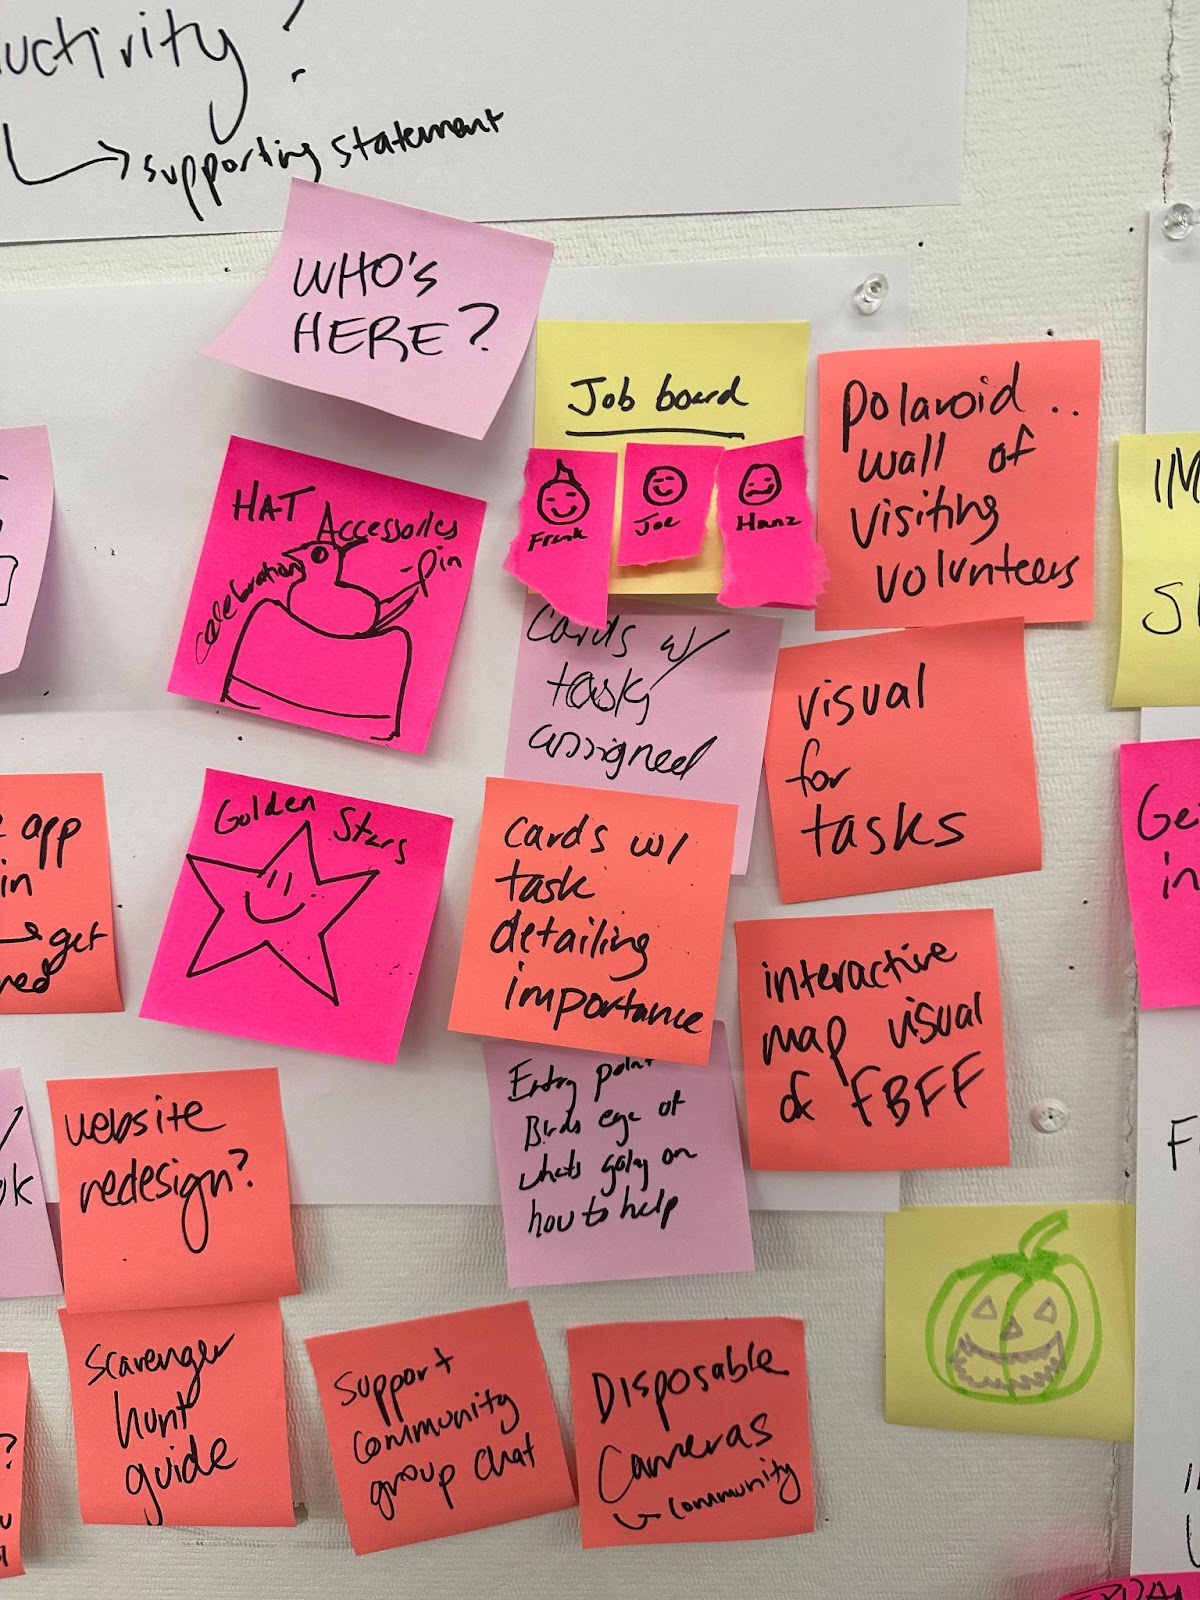 uctivity?
supporting statement
WHO'S
HERE?
Job board
Frnk
Joe
Hanz
polaroid..
wall of
visiting
volunteers
HAT Accessories
celebration
-pin
cards w/
task
assigned
visual
for
tasks
IM
Golden Stars
cards w/
task
detailing
importance
interactive
map visual
of FBFF
Ge
in
app
in
get
Entry point
Birds eye of
whats going on
how to help
website
redesign?
scavenger
hunt
guide
support
community
group chat
Disposable
Cameras
community